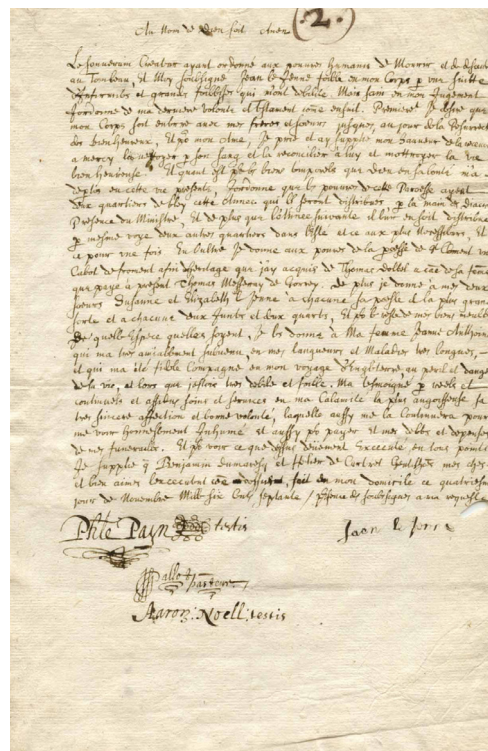 Au Nom de Dieu soit Amen
(.2.)
Le souverain Createur ayant ordonné aux pauvres humains de Mourrir et de descendre
au Tombeau, et Moy soubsigné Jean le Jenne foible en mon Corps p une suitte
d'infirmités et grandes foiblesses qui m'ont debilité Mais sain en mon Jugement
J'ordonne de ma derniere volonté et testament comme ensuit. Premiere Je desire que
mon Corps soit enterré avec mes freres et soeurs jusques au jour de la Resurrection
des bienheureux, Et po mon Ame, Je prie et supplie mon Sauveur de la recevoir
a mercy la nettoyer p son sang et la reconcilier a luy et m'ottroyer la vie
bienheureuse. Et quant est po les biens temporels que Dieu en sa bonté m'a
en cette vie presente, J'ordonne que les pauvres de cette Paroesse ayent
deux quartiers de bley cette annee qui leur seront distribues p la main des Diacres
Presence du Ministre, Et de plus que l'année suivante il leur en soit distribué
p mesme voye deux autres quartiers dans l'Eglise et ce aux plus necessiteux, Et
ce pour une fois En Oultre Je donne aux pauvres de la poesse de St Clement un
Cabot de froment afin d'heritage que j'ay acquis de Thomas a cause de sa femme
que paye a present Thomas Messervy de Gorrey. De plus je donne a mes deux
soeurs Susanne et Elizabeth le Jenne a chacune sa la plus grande
sorte et a chacune deux et deux quarts, Et po le reste de mes biens meubles
de quelle Espece quelles soyent, Je les donne a Ma femme Jeanne Anthoine
qui ma tres amiablement subvenu en mes langueurs et Maladies tres longues,
et qui ma été fidele Compagne en mon voyage d'Engleterre au peril et danger
de sa vie, et lors que j'estois tres debile et foible. Ma tesmoigné p reels et
continuels et assidus soins et services en ma Calamité la plus angoisseuse sa
tres sincere affection et bonne volonté, laquelle aussy me la Continuera pour
me voir honnestement Inhumé et aussy po payer et mes debtes et depenses
de mes funerailles. Et po voir ce que dessus deuement Executé en tout point
Je supplie q Benjamin Dumaresq et Helier de Carteret Gentshoes mes chers
et bien aimes l'executent fait en mon domicile ce quatriesme
jour de Novembre Mill six Cents septante / presence des soubsignes a ma requeste
Phle Payn testis
Jean le Jenne
Pallot pasteur
Aaron: Noell: testis